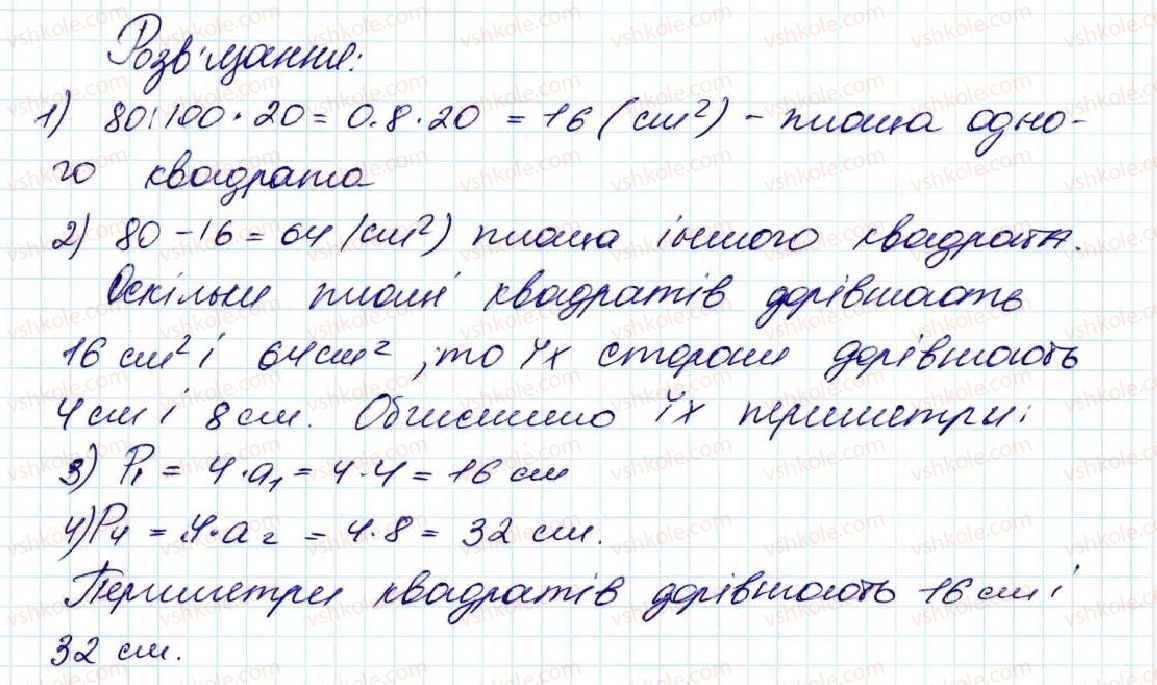 Розв'язання:
1) 80:100·20=0.8·20=16(см²) – площа одно-
го квадрата
2) 80-16=64(см²) площа іншого квадрата.
Оскільки площі квадратів дорівнюють
16 см² і 64см², то їх сторони дорівнюють
4см і 8см. Обчислимо їх периметри:
3) P₁ = 4·a₁ = 4·4 = 16 см
4) P₄ = 4·a₂ = 4·8 = 32 см.
Периметри квадратів дорівнюють 16 см і
32 см.